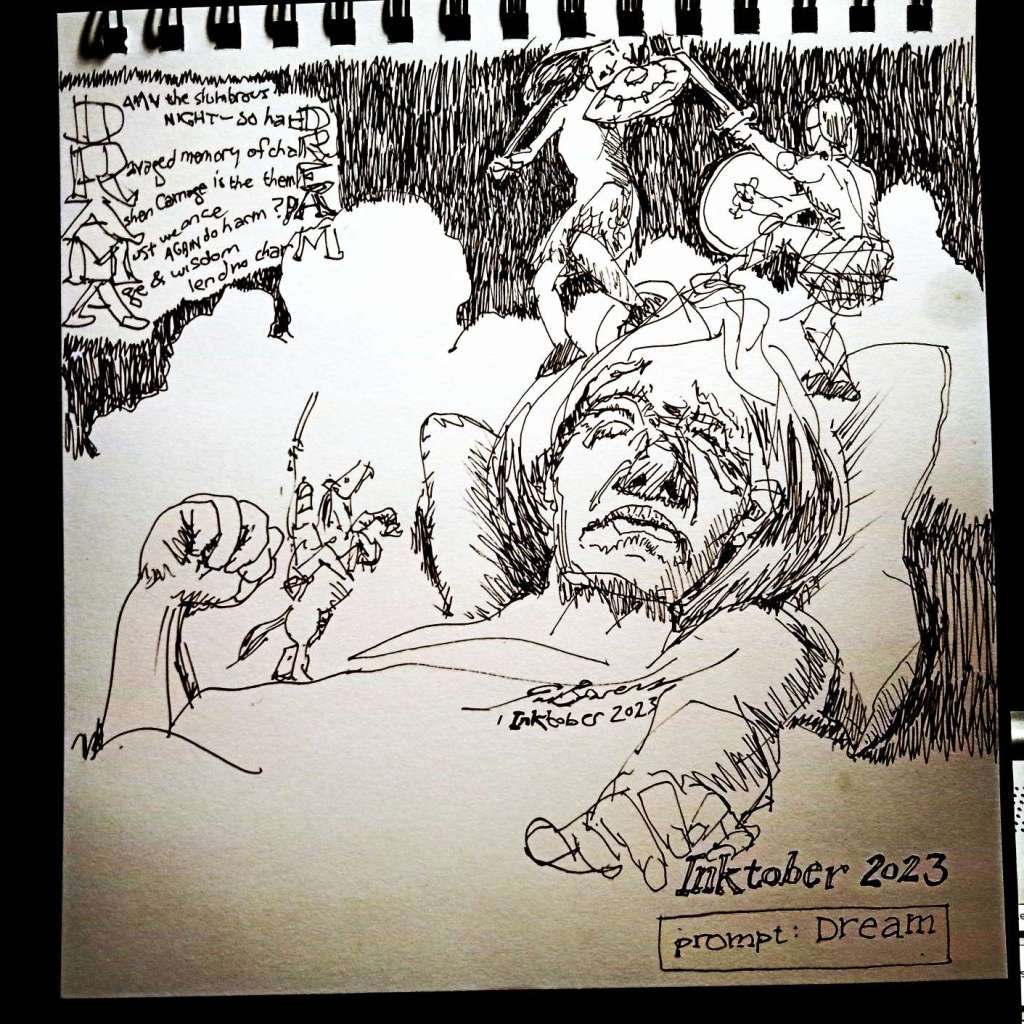 DAMN the slumbrous
NIGHT - so harD
Ravaged memory of chaiR
Ashen Carnage is the themE
Must we once
AGAIN do harm? A
Age & wisdom
lend no charM
Inktober 2023
Inktober 2023
prompt: Dream